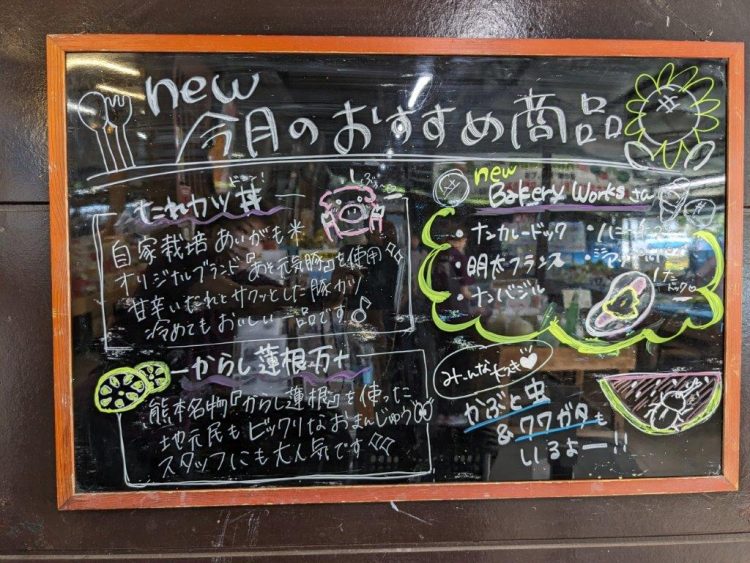 new
今月のおすすめ商品
たれカツ丼
自家栽培 あいがも米
オリジカルブランド『あそ元気豚』を使用
甘辛いたれとサクッとした豚カツ
冷めてもおいしい一品です♪
からし蓮根万十
熊本名物『からし蓮根』を使った
地元民もビックリなおまんじゅう
スタッフにも大人気です
new
Bakery Worksさん
・ナンカレードック
・明太フランス
・ナンバジル
みーんな大好き♥
かぶと虫
&クワガタも
いるよー!!